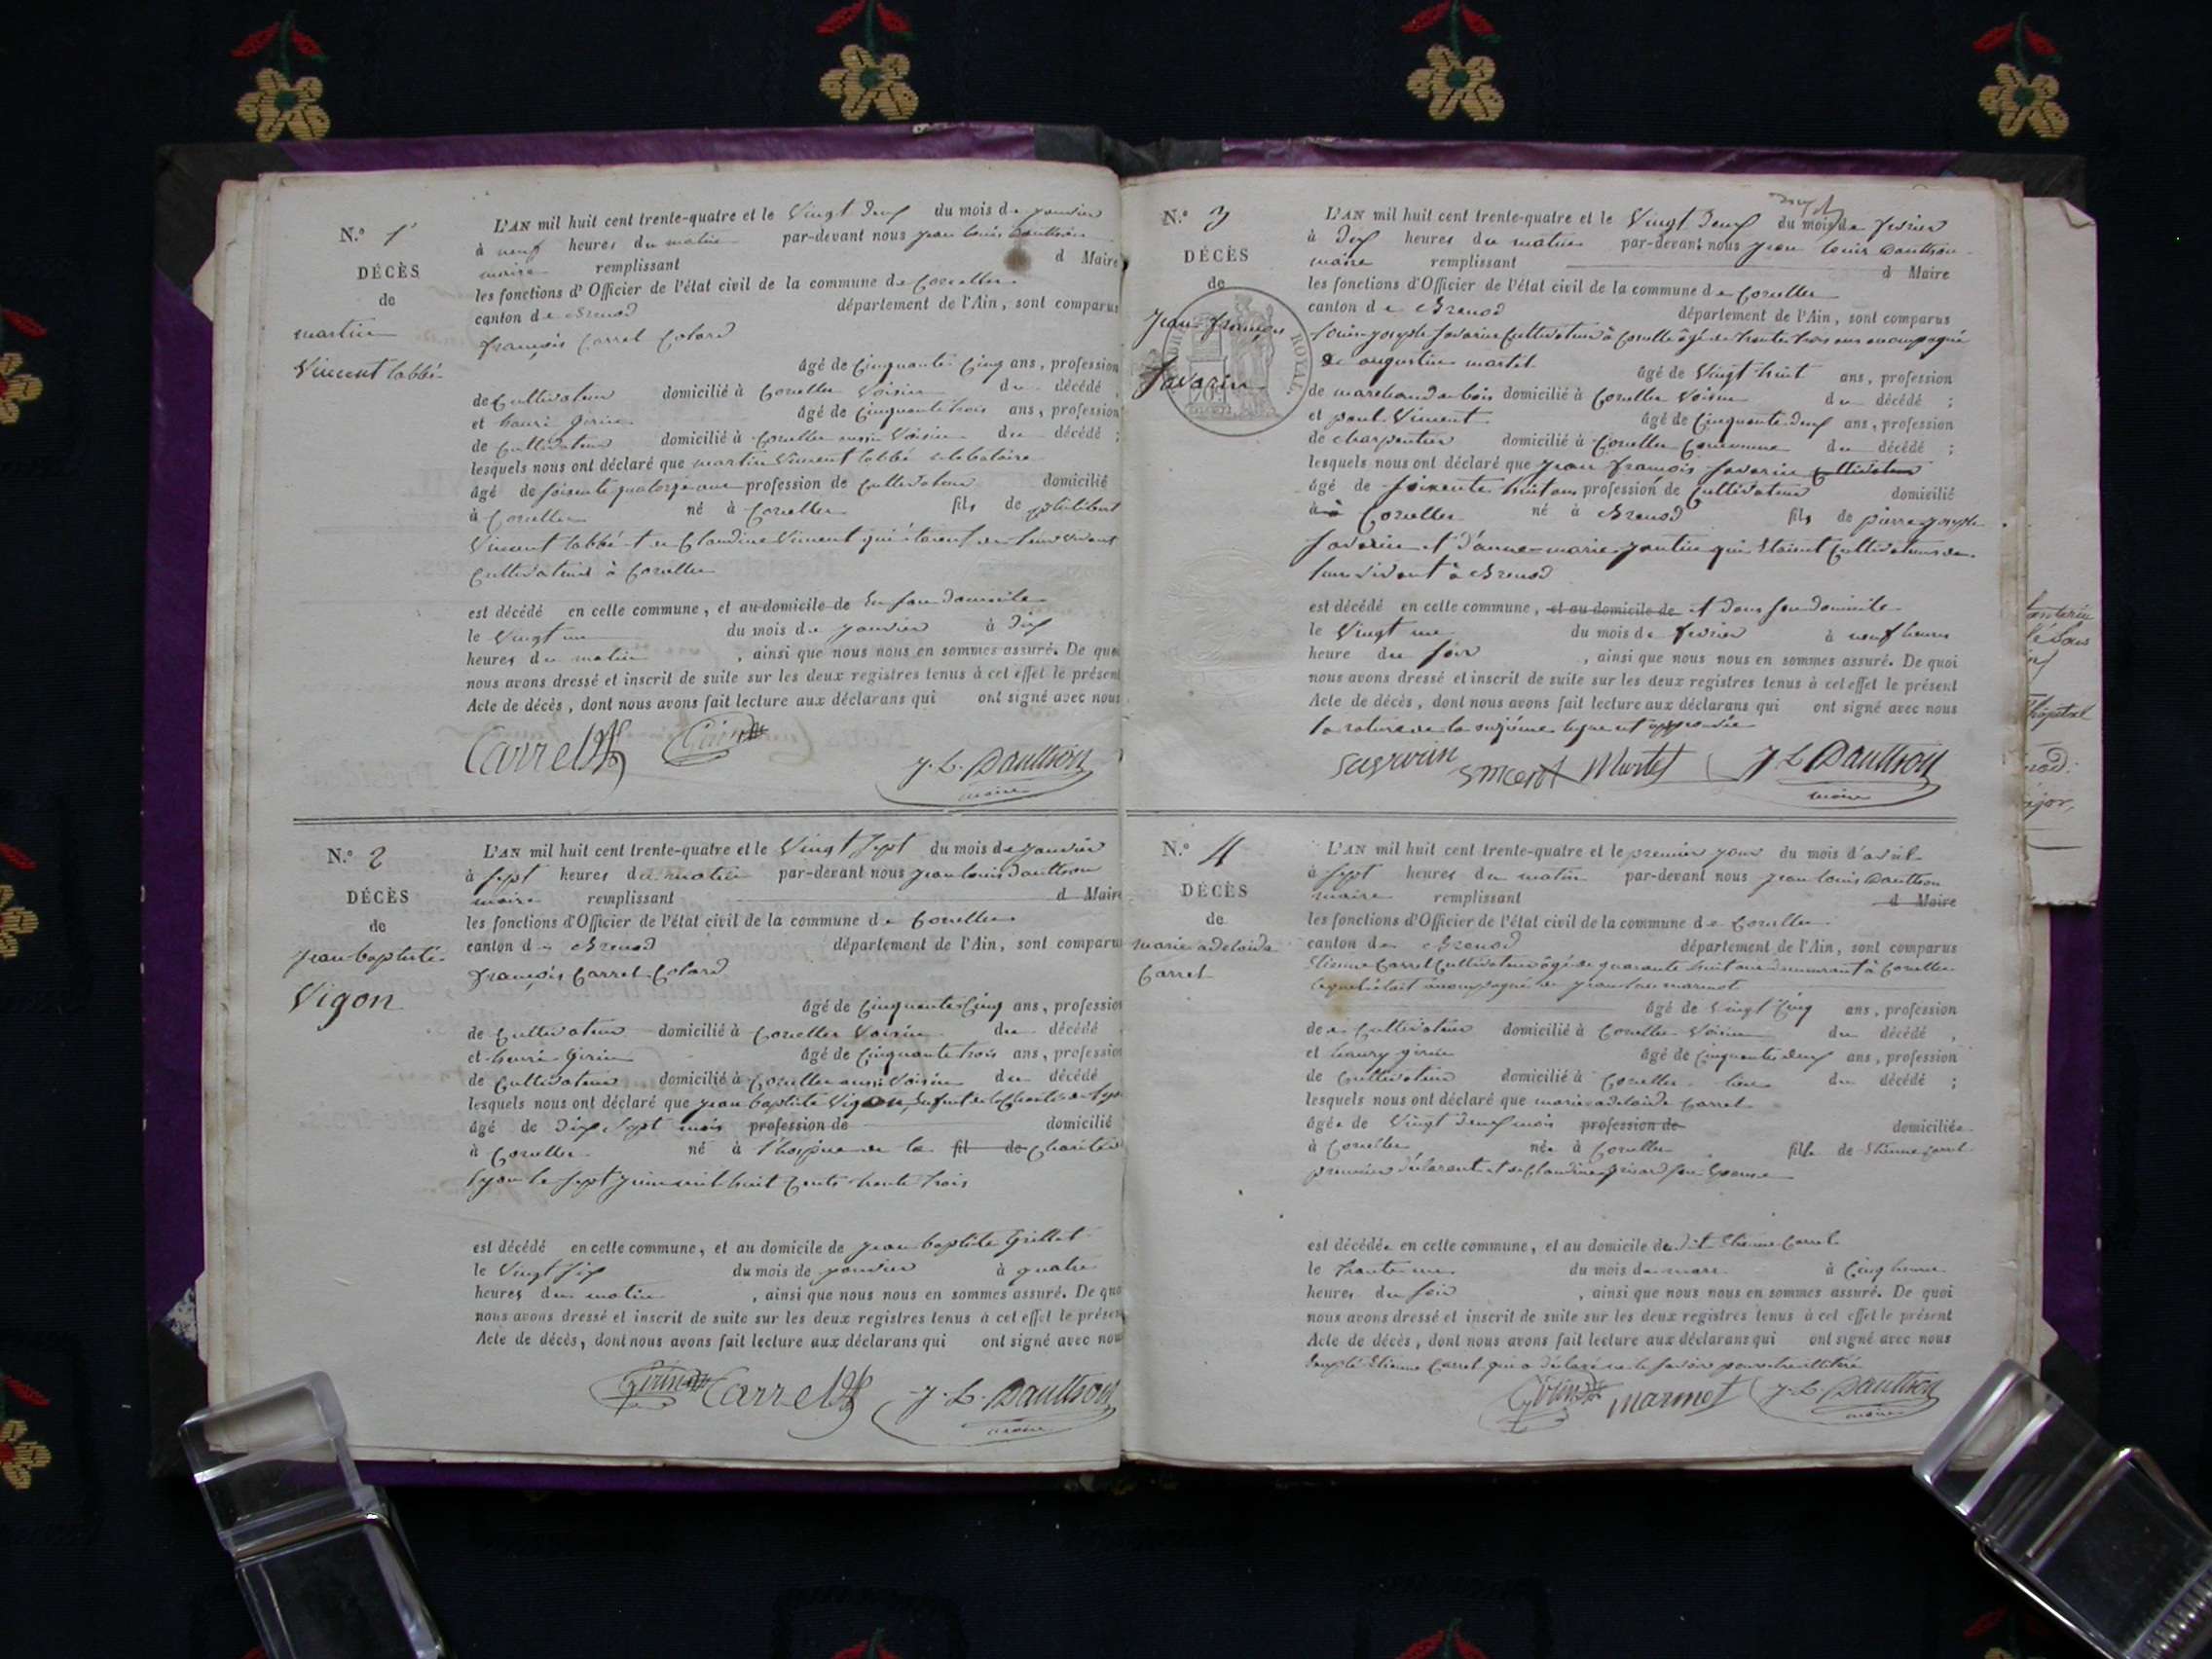 N.º 1
DÉCÈS
de
martin
Vincent labbé
L'AN mil huit cent trente-quatre et le Vingt deux du mois de janvier
à neuf heures du matin par-devant nous jean louis Dauthion
maire remplissant d Maire
les fonctions d'Officier de l'état civil de la commune de Corcelles
canton de Brenod département de l'Ain, sont comparus
françois Carrel Colard
âgé de Cinquante Cinq ans, profession
de Cultivateur domicilié à Corcelles Voisin du décédé,
et henri Girin âgé de Cinquante trois ans, profession
de Cultivateur domicilié à Corcelles aussi Voisin du décédé;
lesquels nous ont déclaré que martin Vincent labbé célibataire
âgé de soixente quatorze ans profession de Cultivateur domicilié
à Corcelles né à Corcelles fils de philibert
Vincent labbé et de Claudine Vincent qui étaient de leur vivant
Cultivateurs à Corcelles
est décédé en cette commune, et au domicile de En son domicile
le Vingt un du mois de janvier à dix
heures du matin, ainsi que nous nous en sommes assuré. De quoi
nous avons dressé et inscrit de suite sur les deux registres tenus à cet effet le présent
Acte de décès, dont nous avons fait lecture aux déclarans qui ont signé avec nous
Carrel Girin
J. L. Dauthion
maire
N.º 2
DÉCÈS
de
jean baptiste
Vigon
L'AN mil huit cent trente-quatre et le Vingt sept du mois de janvier
à sept heures du matin par-devant nous jean louis Dauthion
maire remplissant d Maire
les fonctions d'Officier de l'état civil de la commune de Corcelles
canton de Brenod département de l'Ain, sont comparus
françois Carrel Colard
âgé de Cinquante Cinq ans, profession
de Cultivateur domicilié à Corcelles Voisin du décédé
et henri Girin âgé de Cinquante trois ans, profession
de Cultivateur domicilié à Corcelles aussi Voisin du décédé
lesquels nous ont déclaré que jean baptiste Vigon, Enfant de la Charité de Lyon
âgé de dix sept mois profession de domicilié
à Corcelles né à l'hospice de la fil de Charité
Lyon le sept juin mil huit Cents trente trois
est décédé en cette commune, et au domicile de jean baptiste Grillet
le Vingt six du mois de janvier à quatre
heures du matin, ainsi que nous nous en sommes assuré. De quoi
nous avons dressé et inscrit de suite sur les deux registres tenus à cet effet le présent
Acte de décès, dont nous avons fait lecture aux déclarans qui ont signé avec nous
Girin Carrel J. L. Dauthion
maire
N.º 3
DÉCÈS
de
jean françois
Savarin
ROYAL
L'AN mil huit cent trente-quatre et le Vingt deux du mois de fevrier
à dix heures du matin par-devant nous jean louis Dauthion
maire remplissant d Maire
les fonctions d'Officier de l'état civil de la commune de Corcelles
canton de Brenod département de l'Ain, sont comparus
louis joseph Savarin Cultivateur à Corcelles âgé de trente trois ans accompagné
de augustin martel âgé de Vingt huit ans, profession
de marchand de bois domicilié à Corcelles Voisin du décédé;
et paul Vincent âgé de Cinquante deux ans, profession
de charpentier domicilié à Corcelles du décédé;
lesquels nous ont déclaré que jean françois Savarin Cultivateur
âgé de soixente huit ans profession de Cultivateur domicilié
à à Corcelles né à Brenod fils de pierre joseph
Savarin et d'anne-marie jantin qui étaient Cultivateurs de
leur vivant à Brenod
est décédé en cette commune, et au domicile de et dans son domicile
le Vingt un du mois de fevrier à neuf heures
heure du soir, ainsi que nous nous en sommes assuré. De quoi
nous avons dressé et inscrit de suite sur les deux registres tenus à cet effet le présent
Acte de décès, dont nous avons fait lecture aux déclarans qui ont signé avec nous
la rature de la onzième ligne est approuvée
Savarin Vincent Martel J L Dauthion
maire
N.º 4
DÉCÈS
de
marie adelaïde
Carrel
L'AN mil huit cent trente-quatre et le premier jour du mois d'avril
à sept heures du matin par-devant nous jean louis Dauthion
maire remplissant d Maire
les fonctions d'Officier de l'état civil de la commune de Corcelles
canton de Brenod département de l'Ain, sont comparus
Etienne Carrel Cultivateur âgé de quarante huit ans demeurant à Corcelles
lequel était accompagné de jean marmet
âgé de Vingt Cinq ans, profession
de Cultivateur domicilié à Corcelles Voisin du décédé,
et henry girin âgé de Cinquante deux ans, profession
de Cultivateur domicilié à Corcelles du décédé;
lesquels nous ont déclaré que marie adelaïde Carrel
âgée de Vingt deux mois profession de domiciliée
à Corcelles née à Corcelles fille de Etienne Carrel
premier déclarant et de Claudine Girard son Epouse
est décédée en cette commune, et au domicile de dit Etienne Carrel
le trente un du mois de mars à Cinq heures
heures du soir, ainsi que nous nous en sommes assuré. De quoi
nous avons dressé et inscrit de suite sur les deux registres tenus à cet effet le présent
Acte de décès, dont nous avons fait lecture aux déclarans qui ont signé avec nous
Excepté Etienne Carrel qui a déclaré ne le savoir pour être illitéré
Girin marmet J. L. Dauthion
maire